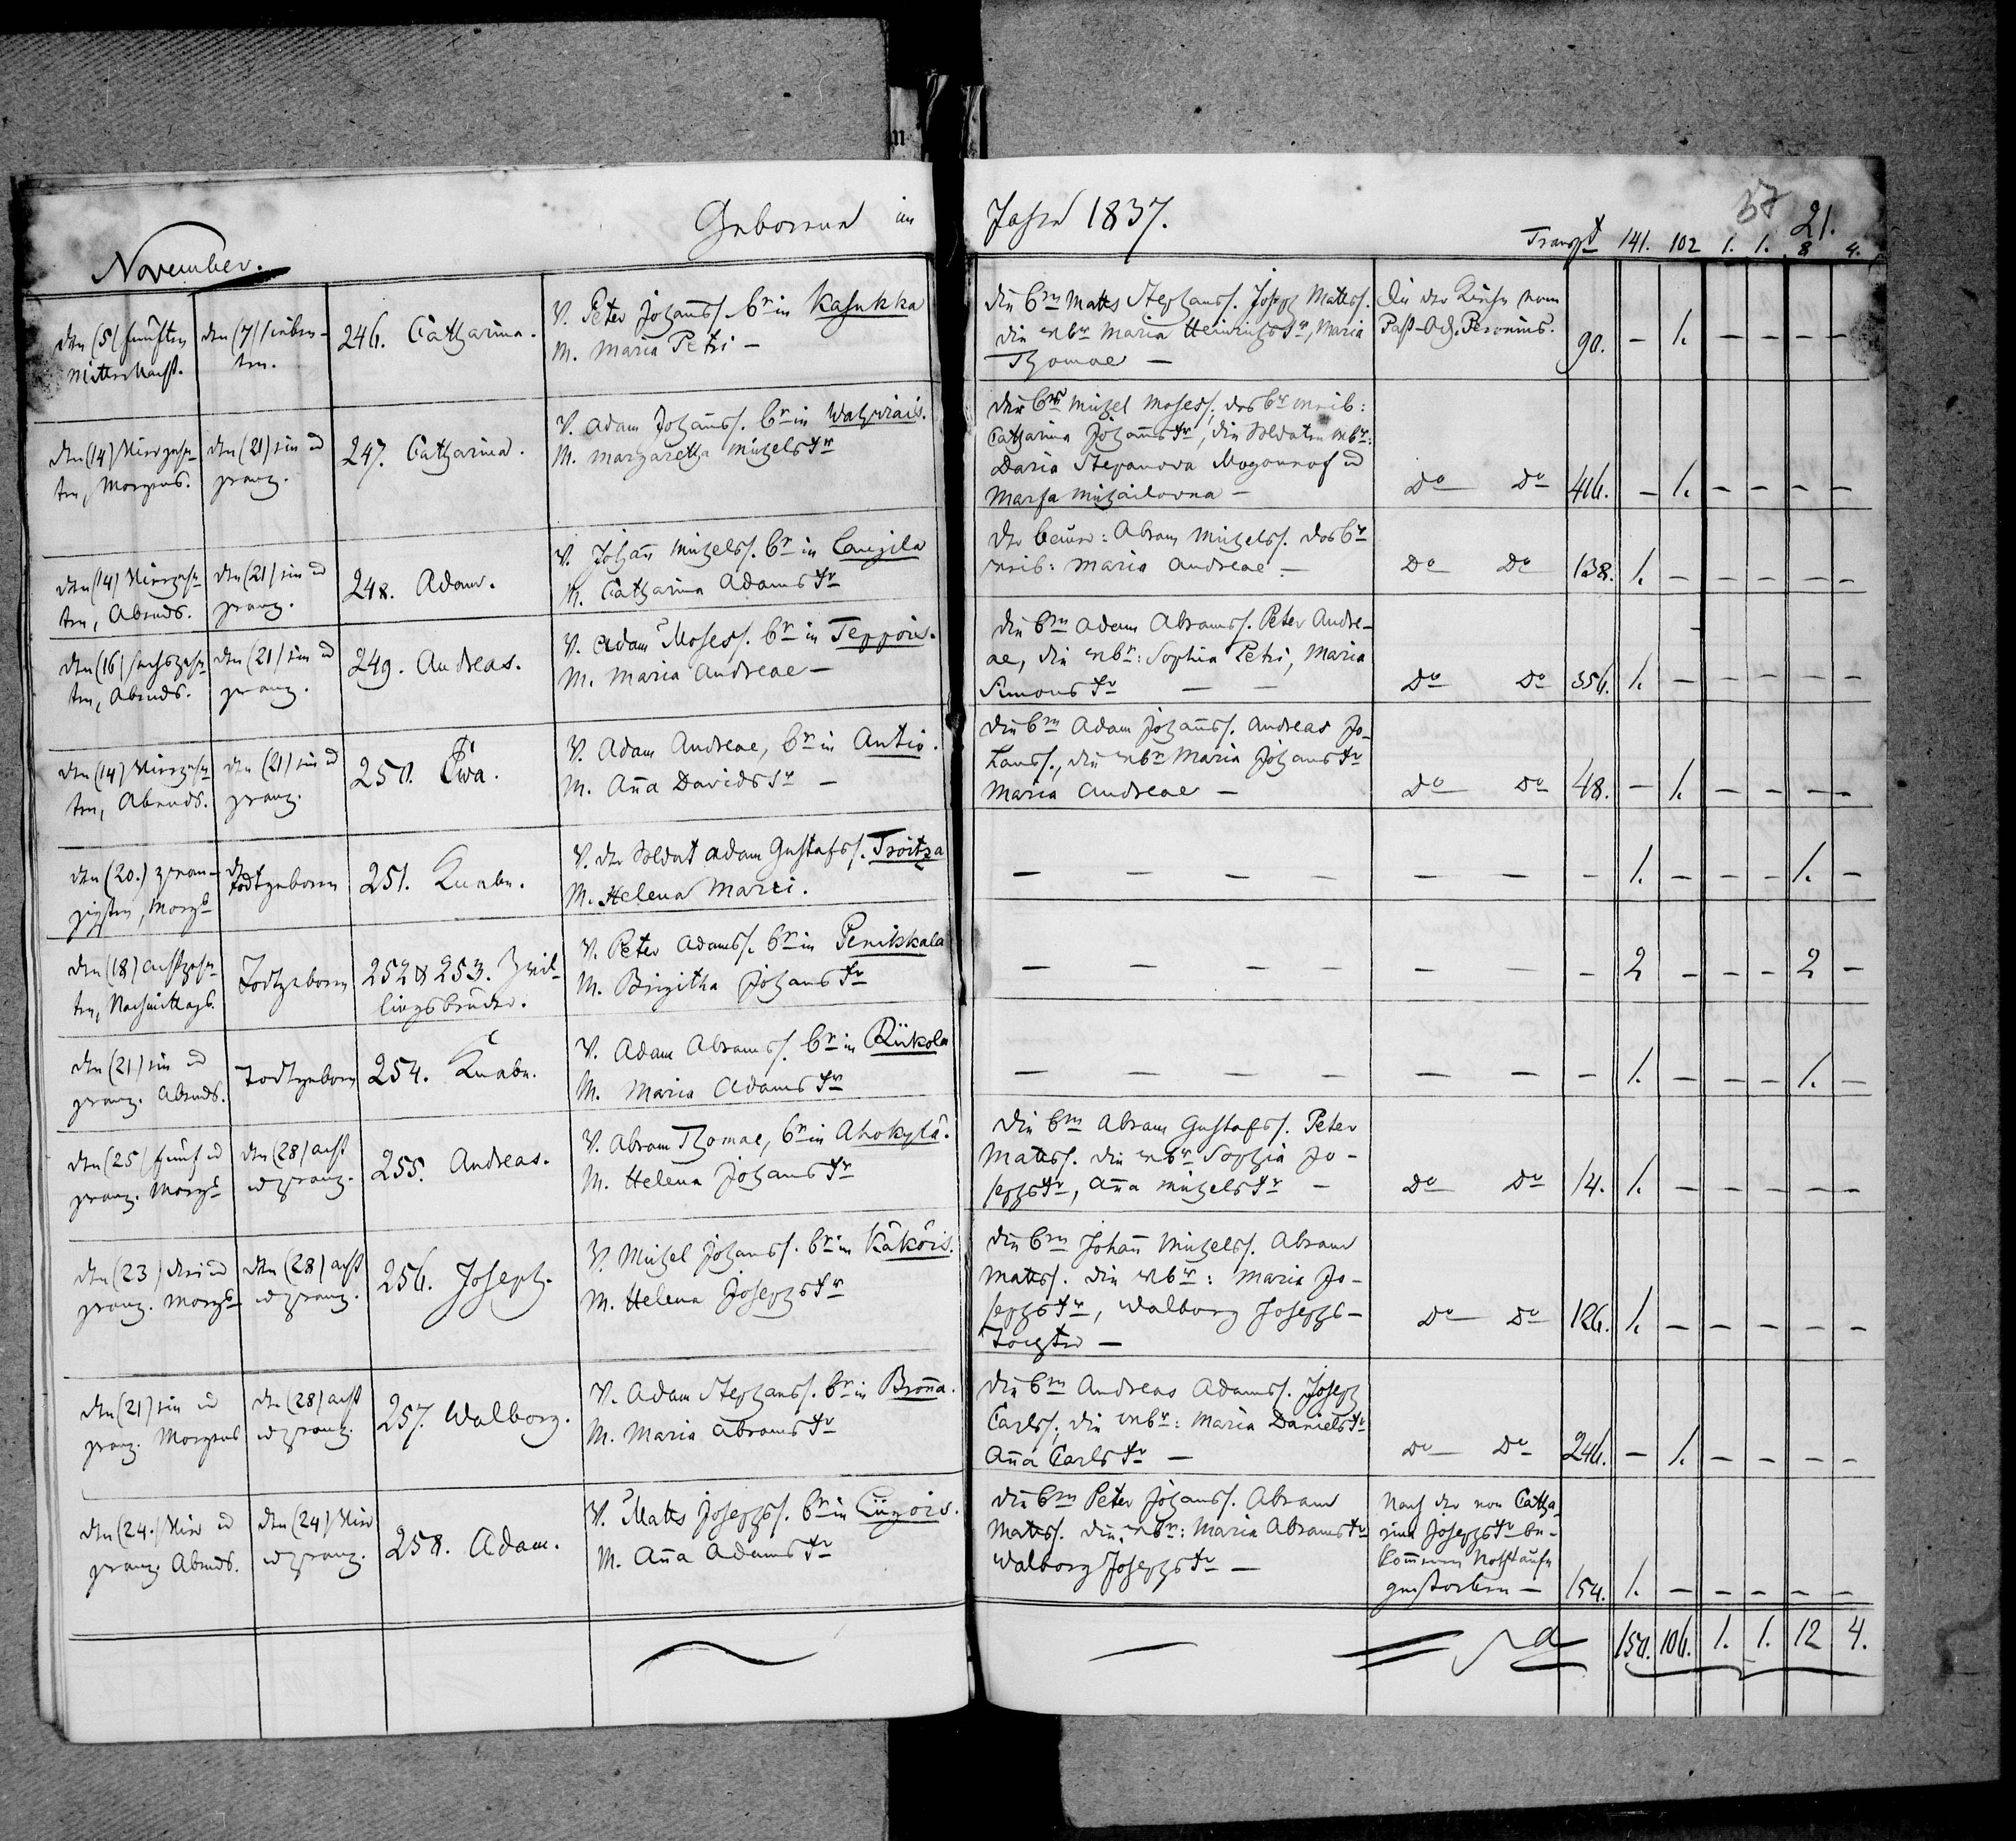 Geborene im
Jahre 1837.
37
21.
November.
Transpt 141. 102 1. 1. 8 4.
den (5) fünften
Mitternacht.
den (7) sieben-
ten.
246. Catharina.
V. Peter Johanss. br in Kasukka
M. Maria Petri —
die brn Matts Stephanss. Joseph Mattss.
die wbr Maria Heinrichstr, Maria
Thomae —
In der Kirche vom
Past-Adj. Peronius.
90. — 1. — — — —
den (14) vierzehn-
ten, Morgens.
den (21) ein u
zwanz.
247. Catharina.
V. Adam Johanss. br in Wahviais.
M. Margaretha Michelstr
Der br Michel Mosess. des br Weib:
Catharina Johannstr, die Soldaten wbr:
Daria Stepanova Mogonnof u
Marfa Michailovna —
Do Do 416. — 1. — — — —
den (14) vierzehn-
ten, Abends.
den (21) ein u
zwanz.
248. Adam.
V. Johan Michelss. br in Caugila
M. Catharina Adamstr
Der bauer: Abram Michelss. des br
Weib: Maria Andreae —
Do Do 138. 1. — — — — —
den (16) sechszehn-
ten, Abends.
den (21) ein u
zwanz.
249. Andreas.
V. Adam Mosess. br in Teppois.
M. Maria Andreae —
die brn Adam Abramss. Peter Andre-
ae, die wbr: Sophia Petri, Maria
Simonstr — —
Do Do 356. 1. — — — — —
den (14) vierzehn-
ten, Abends.
den (21) ein u
zwanz.
250. Ewa.
V. Adam Andreae, br in Antio.
M. Ana Davidstr —
die brn Adam Johanss. Andreas Jo-
hanss., die wbr Maria Johanstr
Maria Andreae —
Do Do 48. — 1. — — — —
den (20.) zwan-
zigsten, Morgs
todtgeboren
251. Knabe.
V. der Soldat Adam Gustafss. Troitza
M. Helena Marci.
— — — — — — — 1. — — — 1. —
den (18) achtzehn-
ten, Nachmittags.
Todtgeboren
252 & 253. Zwil-
lingsbrüder.
V. Peter Adamss. br in Penikkala
M. Brigitha Johanstr
— — — — — — — 2 — — — 2 —
den (21) ein u
zwanz. Abends.
Todtgeboren
254. Knabe.
V. Adam Abramss. br in Riikola
M. Maria Adamstr
— — — — — — — 1. — — — 1. —
den (25) fünf u
zwanz. Morgs
den (28) acht
u zwanz.
255. Andreas.
V. Abram Thomae, br in Ahokylä.
M. Helena Johanstr
Die brn Abram Gustafss. Peter
Mattss. die wbr Sophia Jo-
sephstr, Ana Michelstr —
Do Do 14. 1. — — — — —
den (23) drei u
zwanz. Morgs
den (28) acht
u zwanz.
256. Joseph.
V. Michel Johanss. br in Käköis.
M. Helena Josephstr
die brn Johan Michelss. Abram
Mattss. die wbr: Maria Jo-
sephstr, Walborg Josephs-
tochter —
Do Do 126. 1. — — — — —
den (21) ein u
zwanz. Morgens
den (28) acht
u zwanz.
257. Walborg.
V. Adam Stephanss. br in Brona.
M. Maria Abramstr
die brn Andreas Adamss. Joseph
Carlss. die wbr: Maria Danielstr
Ana Carlstr —
Do Do 246. — 1. — — — —
den (24.) vier u
zwanz. Abends.
den (24) vier
u zwanz.
258. Adam.
V. Matts Josephss. br in
M. Ana Adamstr
die brn Peter Johanss. Abram
Mattss. die wbr: Maria Abramstr
Walborg Josephstr —
Nach der von Catha-
rina Josephstr be-
kommenen Nothtaufe
gestorben —
154. 1. — — — — —
150. 106. 1. 1. 12 4.